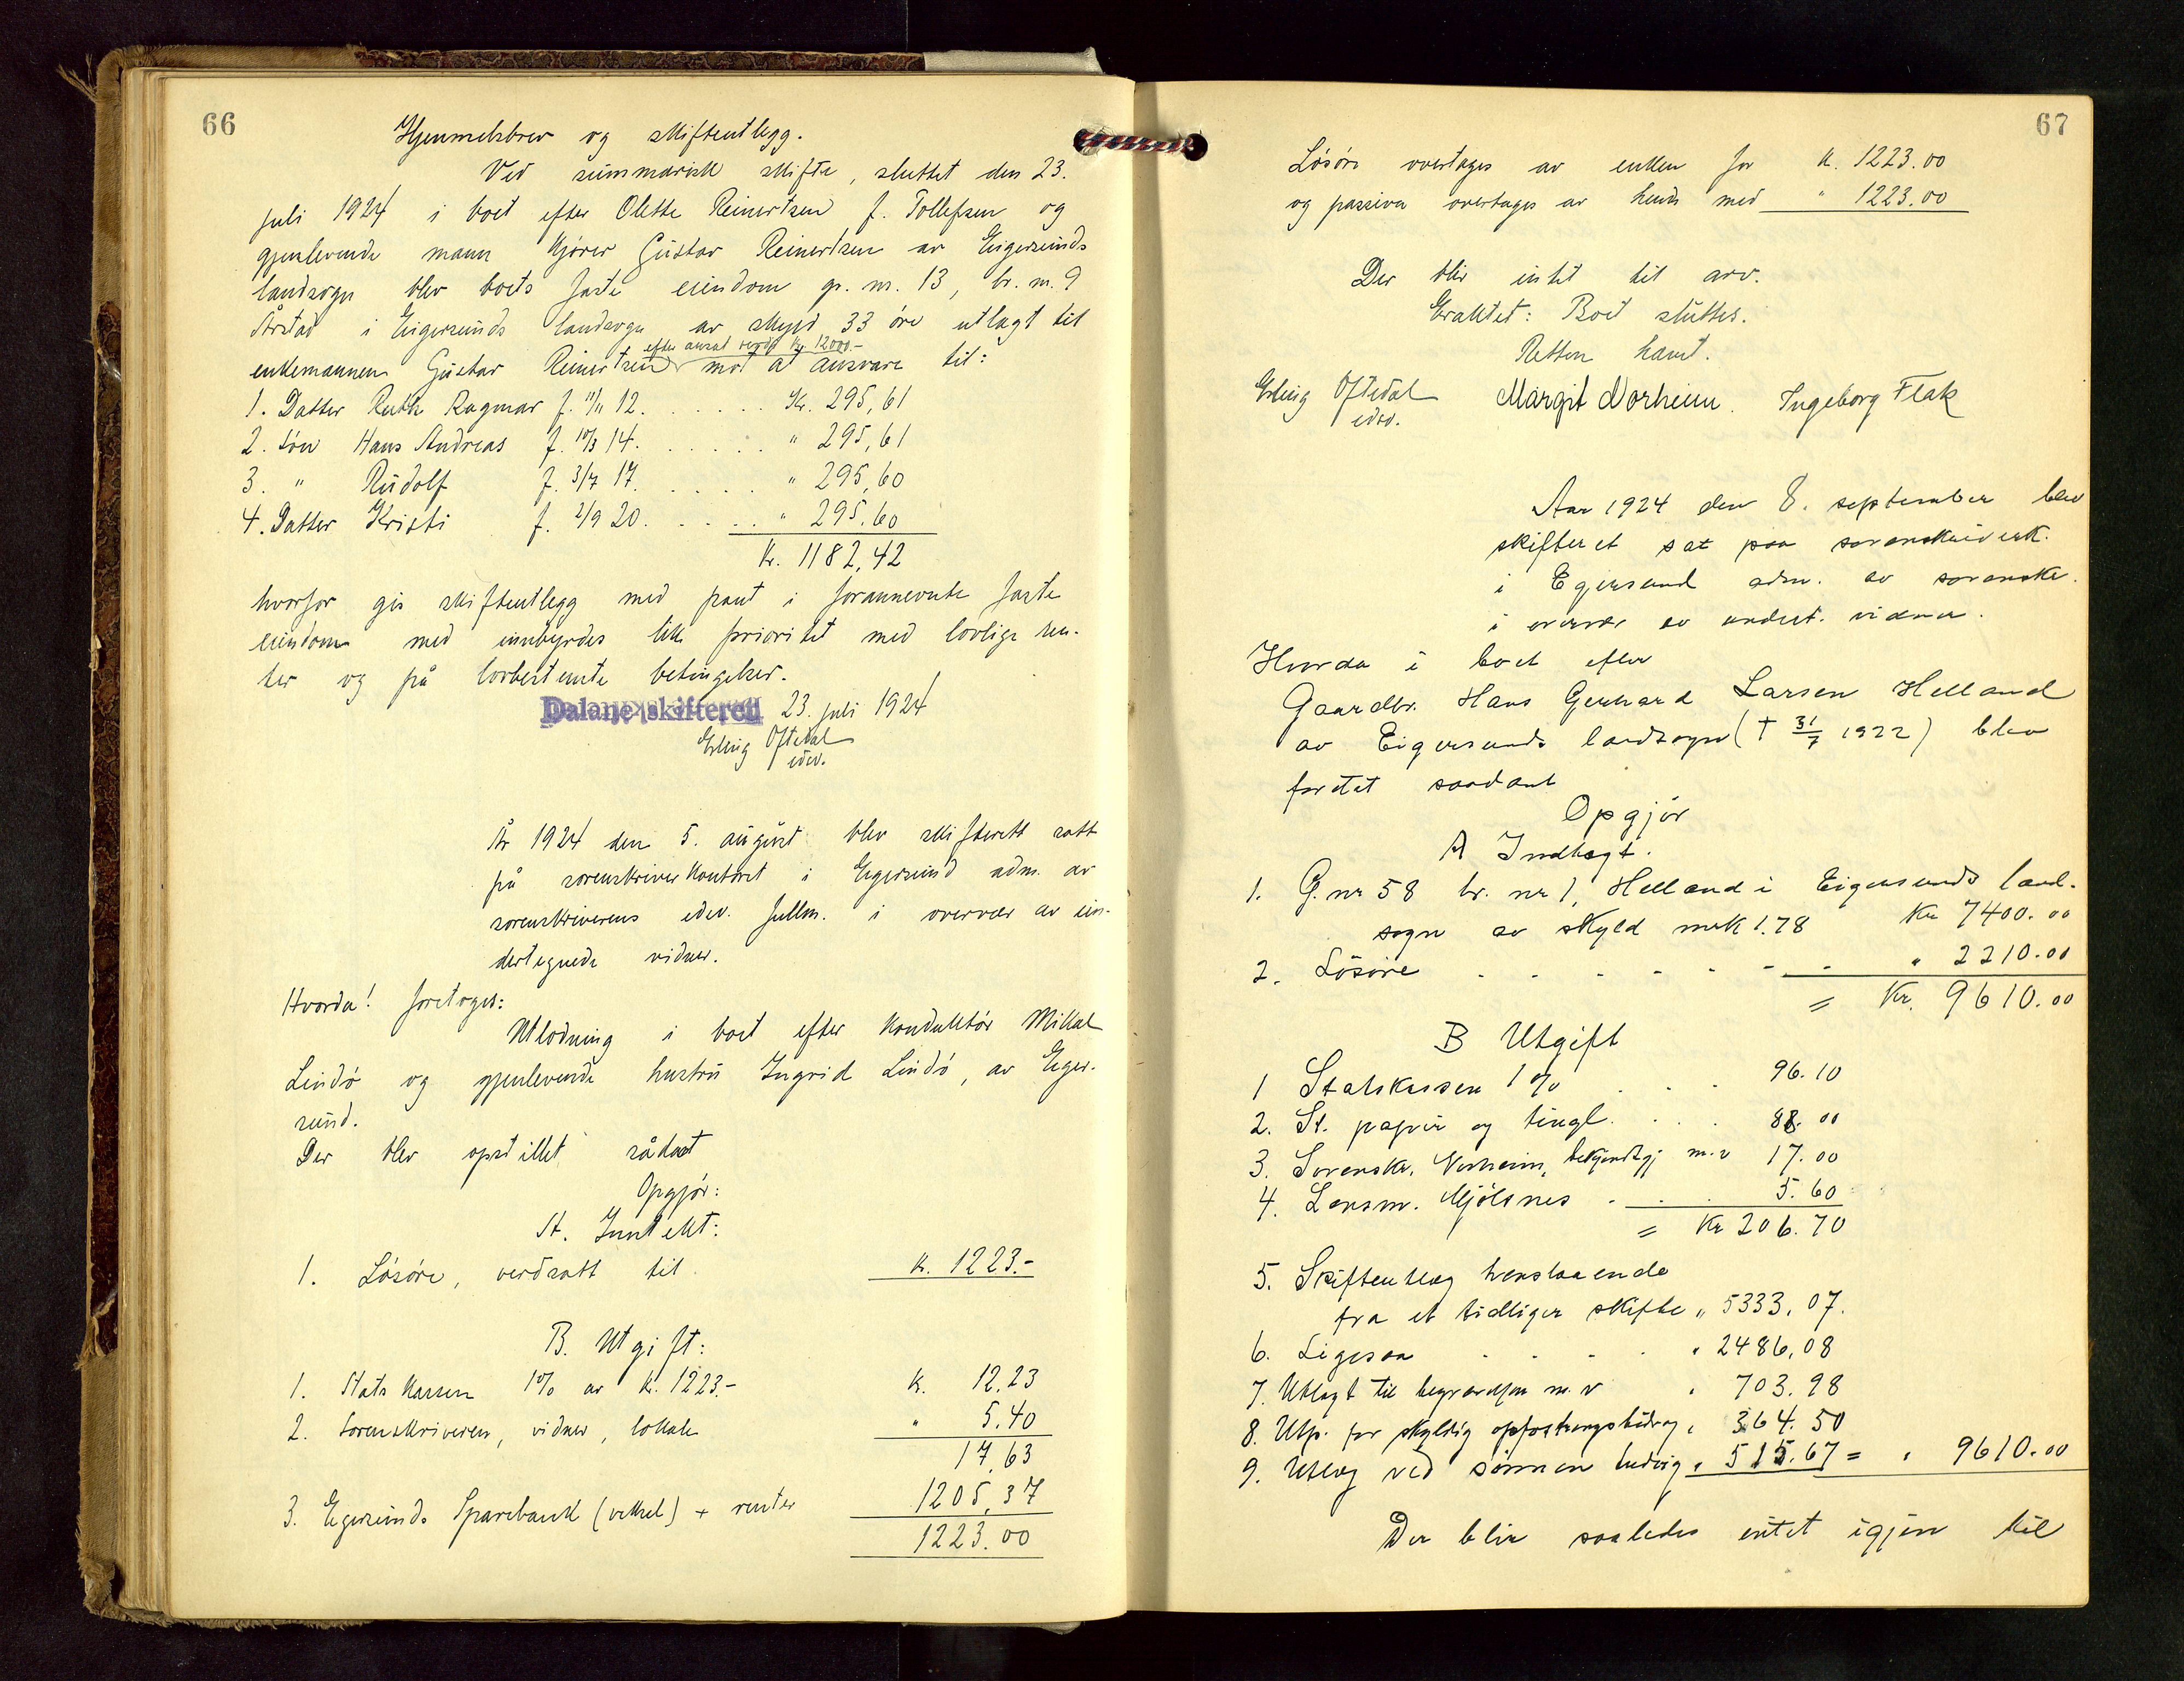 66
Hjemmelsbrev og skifteutlegg.
Ved summarisk skifte, sluttet den 23.
juli 1924 i boet efter Olette Reinertsen f. Tollefsen og
gjenlevende mann kjører Gustav Reinertsen av Eigersunds
landsogn blev boets faste eiendom gr. nr. 13, br. nr. 9
Årstad i Eigersunds landsogn av skyld 33 øre utlagt til
efter ansat verdi kr 12000.-
enkemannen Gustav Reinertsen mot at ansvare til:
1. Datter Ruth Ragmar f. 11/11 12. . . . . . . Kr. 295,61
2. Søn Hans Andreas f. 10/3 14. . . . . . " 295,61
3. " Rudolf f. 3/7 17. . . . . . " 295,60
4. Datter Kristi f. 2/9 20. . . . . . " 295.60
Kr. 1182,42
hvorfor gis skifteutlegg med pant i forannevnte faste
eiendom med innbyrdes lik prioritet med lovlige ren-
ter og på lovbestemte betingelser.
Dalane skifterett 23. juli 1924
Erling Oftedal
edsv.
År 1924 den 5. august blev skifterett satt
på sorenskriverkontoret i Egersund adm. av
sorenskriverens edsv. fullm. i overvær av un-
dertegnede vidner.
Hvorda! foretoges:
Utlodning i boet efter konduktør Mikal
Lindø og gjenlevende hustru Ingrid Lindø, av Eger-
sund.
Der blev opstillet sådant
Opgjør:
A. Inntekt:
1. Løsøre, verdsatt til k. 1223.-
B. Utgift:
1. Statskassen 1% av k. 1223.- k. 12.23
2. Sorenskriveren, vidner, lokale " 5.40
17,63
3. Egersunds Sparebank (veksel) + renter 1205,37
1223.00
67
Løsøre overtages av enken for k. 1223.00
og passiva overtages av hende med " 1223.00
Der blir intet til arv.
Eraktet: Boet sluttes.
Retten hævet.
Erling Oftedal Margit Norheim. Ingeborg Flak
edsv.
Aar 1924 den 8. september blev
skifteret sat paa sorenskriverk.
i Egersund adm. av sorenskr.
i overvær av undert. vidner.
Hvorda i boet efter
Gaardbr. Hans Gerhard Larsen Helland
av Eigersunds landsogn († 31/7 1922) blev
foretat saadant
Opgjør
A Indtægt.
1. G. nr 58 br. nr 1, Helland i Eigersunds land-
sogn av skyld mrk 1.78 Kr 7400.00
2. Løsøre . . . . . . " 2210.00
= Kr. 9610.00
B Utgift
1 Statskassen 1% . . . 96.10
2. St. papir og tingl. . . . 88.00
3. Sorenskr. Norheim, bekjendtgj m.v 17.00
4. Lensm. Mjølsnes . . . 5.60
= Kr 206.70
5. Skifteutlæg henstaaende
fra et tidligere skifte " 5333,07.
6. Ligesaa . . . . " 2486,08
7. Utlagt til begravelsen m.v " 703.98
8. Utp. for skyldig opfostringsbidrag " 364.50
9. Utlæg ved sønnen Ludvig " 515.67 = " 9610.00
Der blir saaledes intet igjen til